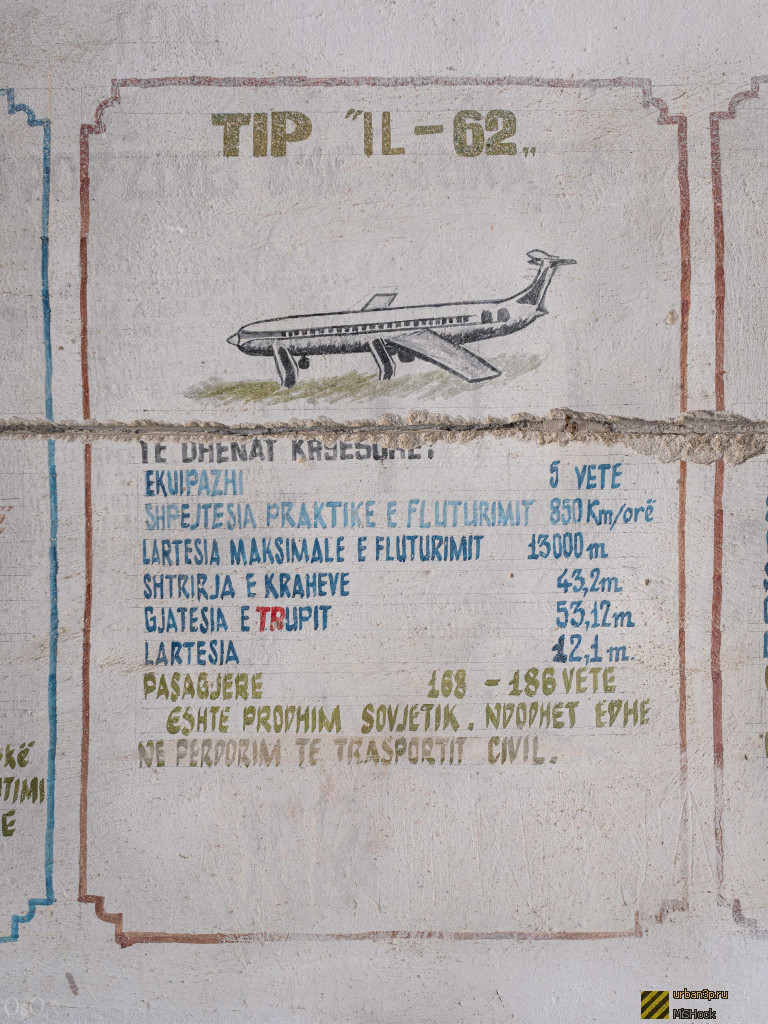 TIP "IL-62„
TE DHENAT KRYESORET
EKUIPAZHI 5 VETE
SHPEJTESIA PRAKTIKE E FLUTURIMIT 850 Km/orë
LARTESIA MAKSIMALE E FLUTURIMIT 13000 m
SHTRIRJA E KRAHEVE 43,2m
GJATESIA E TRUPIT 53,12m
LARTESIA 12,1 m.
PASAGJERE 168 - 186 VETE
ESHTE PRODHIM SOVJETIK. NDODHET EDHE
NE PERDORIM TE TRASPORTIT CIVIL.
OsO
urban3p.ru
MiSHock